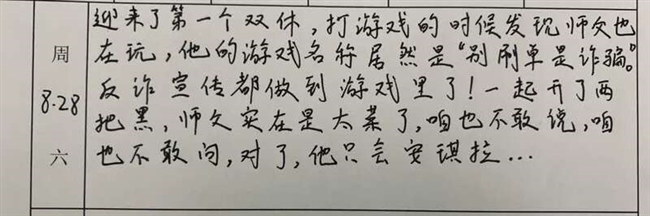 迎来了第一个双休，打游戏的时候发现师父也
在玩，他的游戏名称居然是“别刷单是诈骗”。
反诈宣传都做到游戏里了！一起开了两
把黑，师父实在是太菜了，咱也不敢说，咱
也不敢问，对了，他只会安琪拉...
周
8.28
六